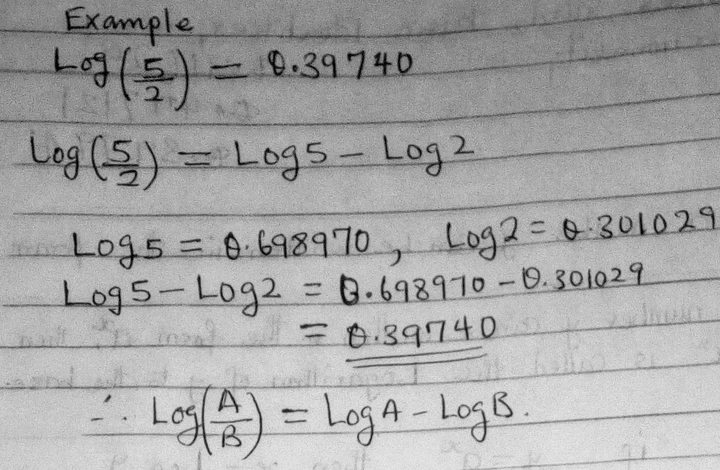 Example
Log(5/2) = 0.39740
Log(5/2) = Log5 - Log2
Log5 = 0.698970, Log2 = 0.301029
Log5 - Log2 = 0.698970 - 0.301029
= 0.39740
∴ Log(A/B) = LogA - LogB.